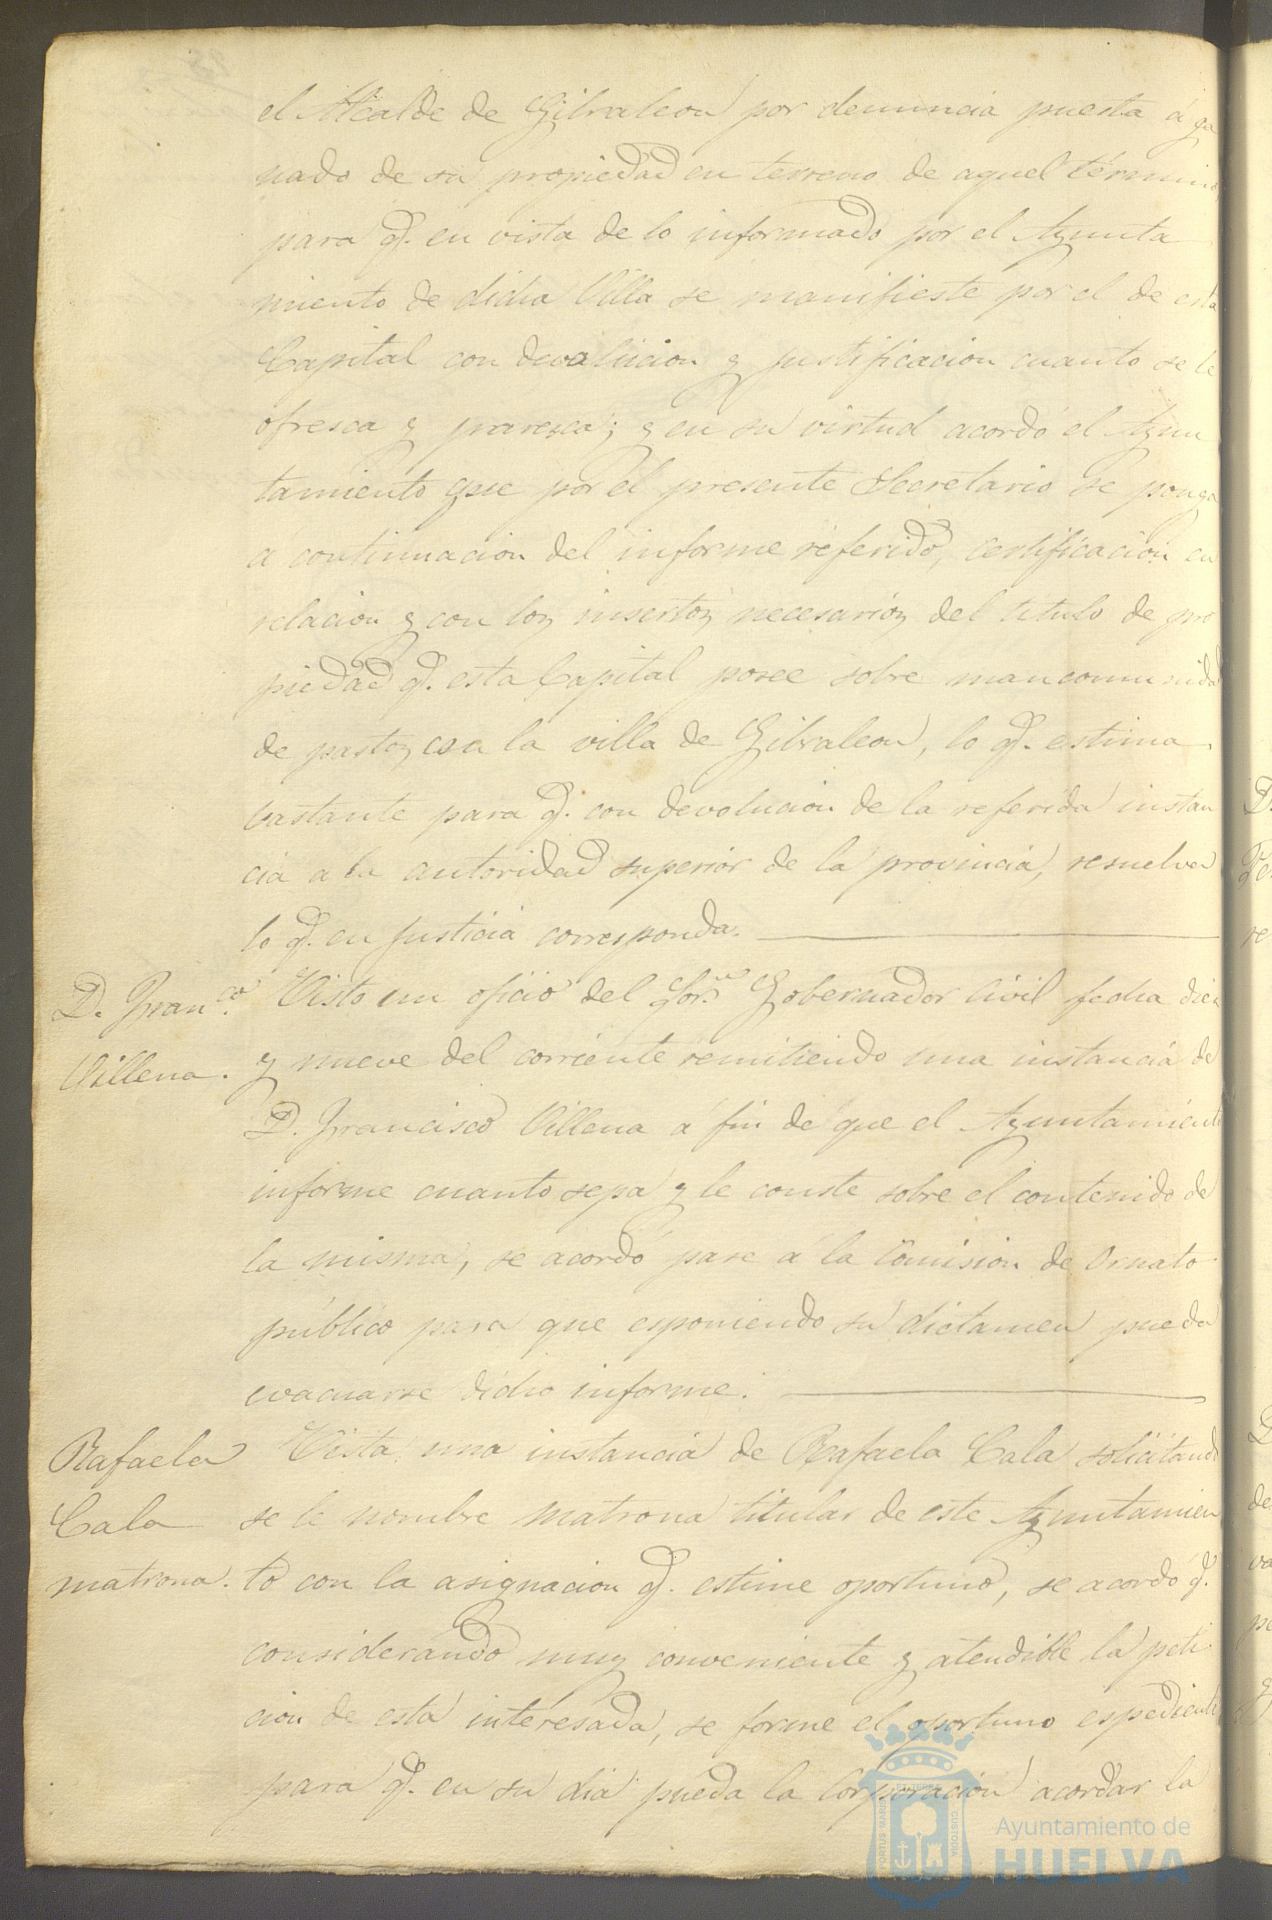 el Alcalde de Gibraleon por denuncia puesta á ga
nado de su propiedad en terreno de aquel término,
para q.e en vista de lo informado por el Ayunta
miento de dicha Villa se manifieste por el de esta
Capital con devolucion y justificacion cuanto se le
ofresca y paresca; y en su virtud acordó el Ayun
tamiento que por el presente Secretario se ponga
a continuacion del informe referido, certificacion en
relacion y con los insertos necesarios del titulo de pro
piedad q.e esta Capital posee sobre mancomunidad
de pastos con la villa de Gibraleon, lo q.e estima
bastante para q.e con devolucion de la referida instan
cia a la autoridad superior de la provincia, resuelva
lo q.e en justicia corresponda.
D. Fran.co
Villena.
Visto un oficio del Gobernador Civil fecha diez
y nueve del corriente remitiendo una instancia de
D. Francisco Villena a fin de que el Ayuntamiento
informe cuanto sepa y le conste sobre el contenido de
la misma, se acordó pase a la Comision de Ornato
público para que esponiendo su dictamen pueda
evacuarse dicho informe.
Rafaela
Cala
matrona.
Vista una instancia de Rafaela Cala solicitando
se le nombre matrona titular de este Ayuntamien
to con la asignacion q.e estime oportuno, se acordó q.e
considerando muy conveniente y atendible la peti
cion de esta interesada, se forme el oportuno espediente
para q.e en su dia pueda la Corporacion acordar la
Ayuntamiento de
HUELVA